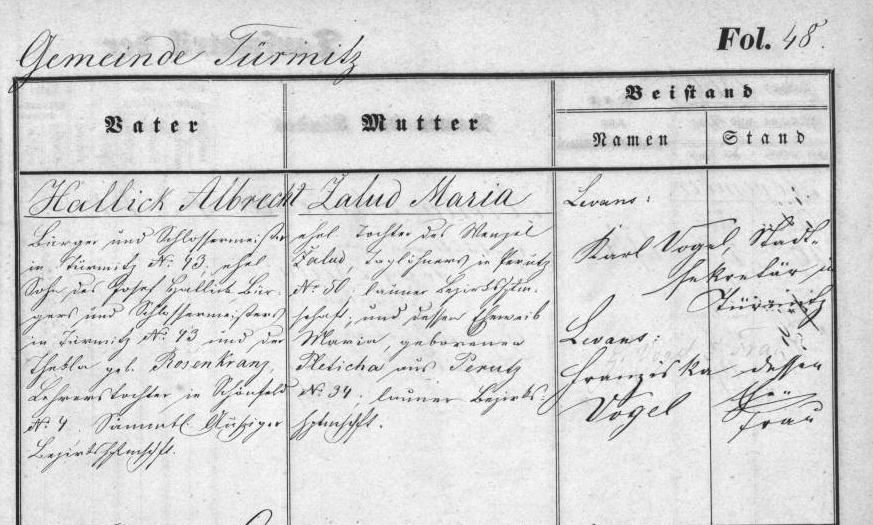 Gemeinde Türmitz
Fol. 48.
Vater
Mutter
Beistand
Namen
Stand
Hallick Albrecht
Bürger und Schlossermeister
in Türmitz N: 43, ehel.
Sohn des Josef Hallick Bür-
gers und Schlossermeisters
in Türmitz N: 43 und der
Thekla geb. Rosenkranz,
Lehrerstochter in Schönfeld
N: 4. Sämmtl. Aussiger
Bezirkshptmschft.
Zalud Maria
ehel. Tochter des Wenzel
Zalud, Taglöhners in Perutz
N: 50, launer Bezirkshptm-
schaft; und dessen Eheweib
Maria, geborenen
Pleticha aus Perutz
N: 34, launer Bezirks-
hptmschft.
Levans:
Karl Vogel, Stadt-
sekretär in
Türmitz
Levans:
Franziska dessen
Vogel Frau